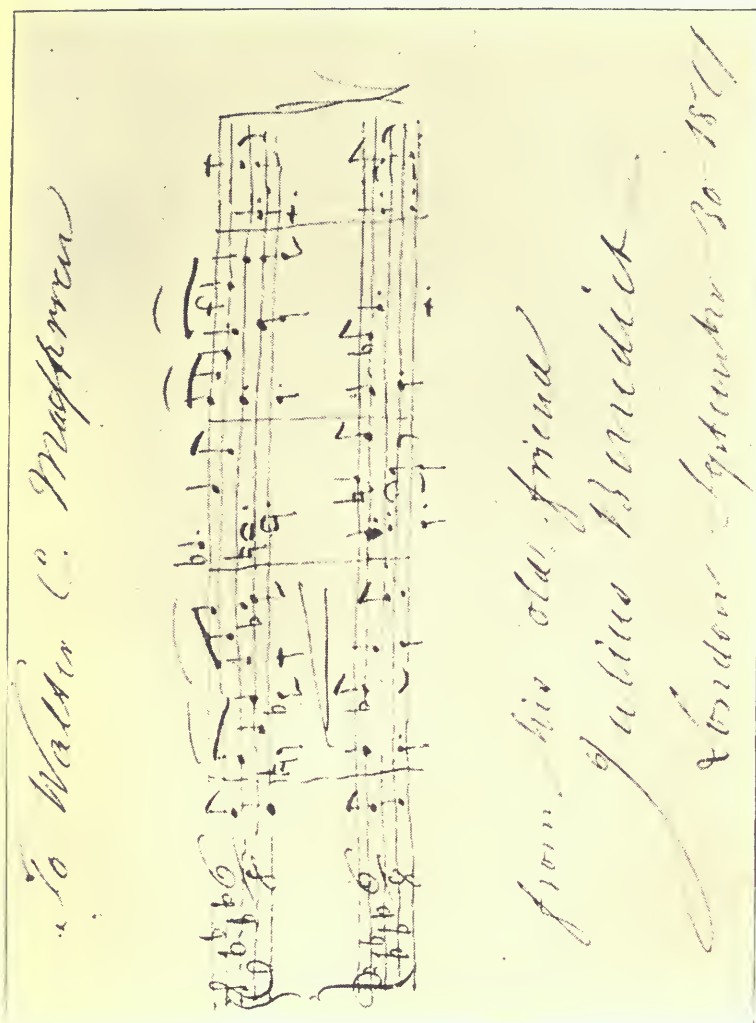 To Walter C. Macfarren
from his old friend
Julius Benedict
London September 30